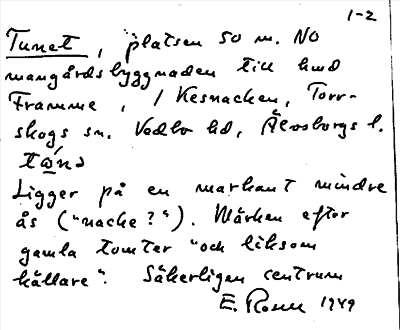 1-2
Tunet, platsen 50 m. NO
mangårdsbyggnaden till hmd
Framme, i Kesnacken, Torr-
skogs sn. Vedbo hd, Älvsborgs l.
Ligger på en markant mindre
ås ("nacke?"). Märken efter
gamla tomter "och liksom
källare". Säkerligen centrum
E. Rosell 1949